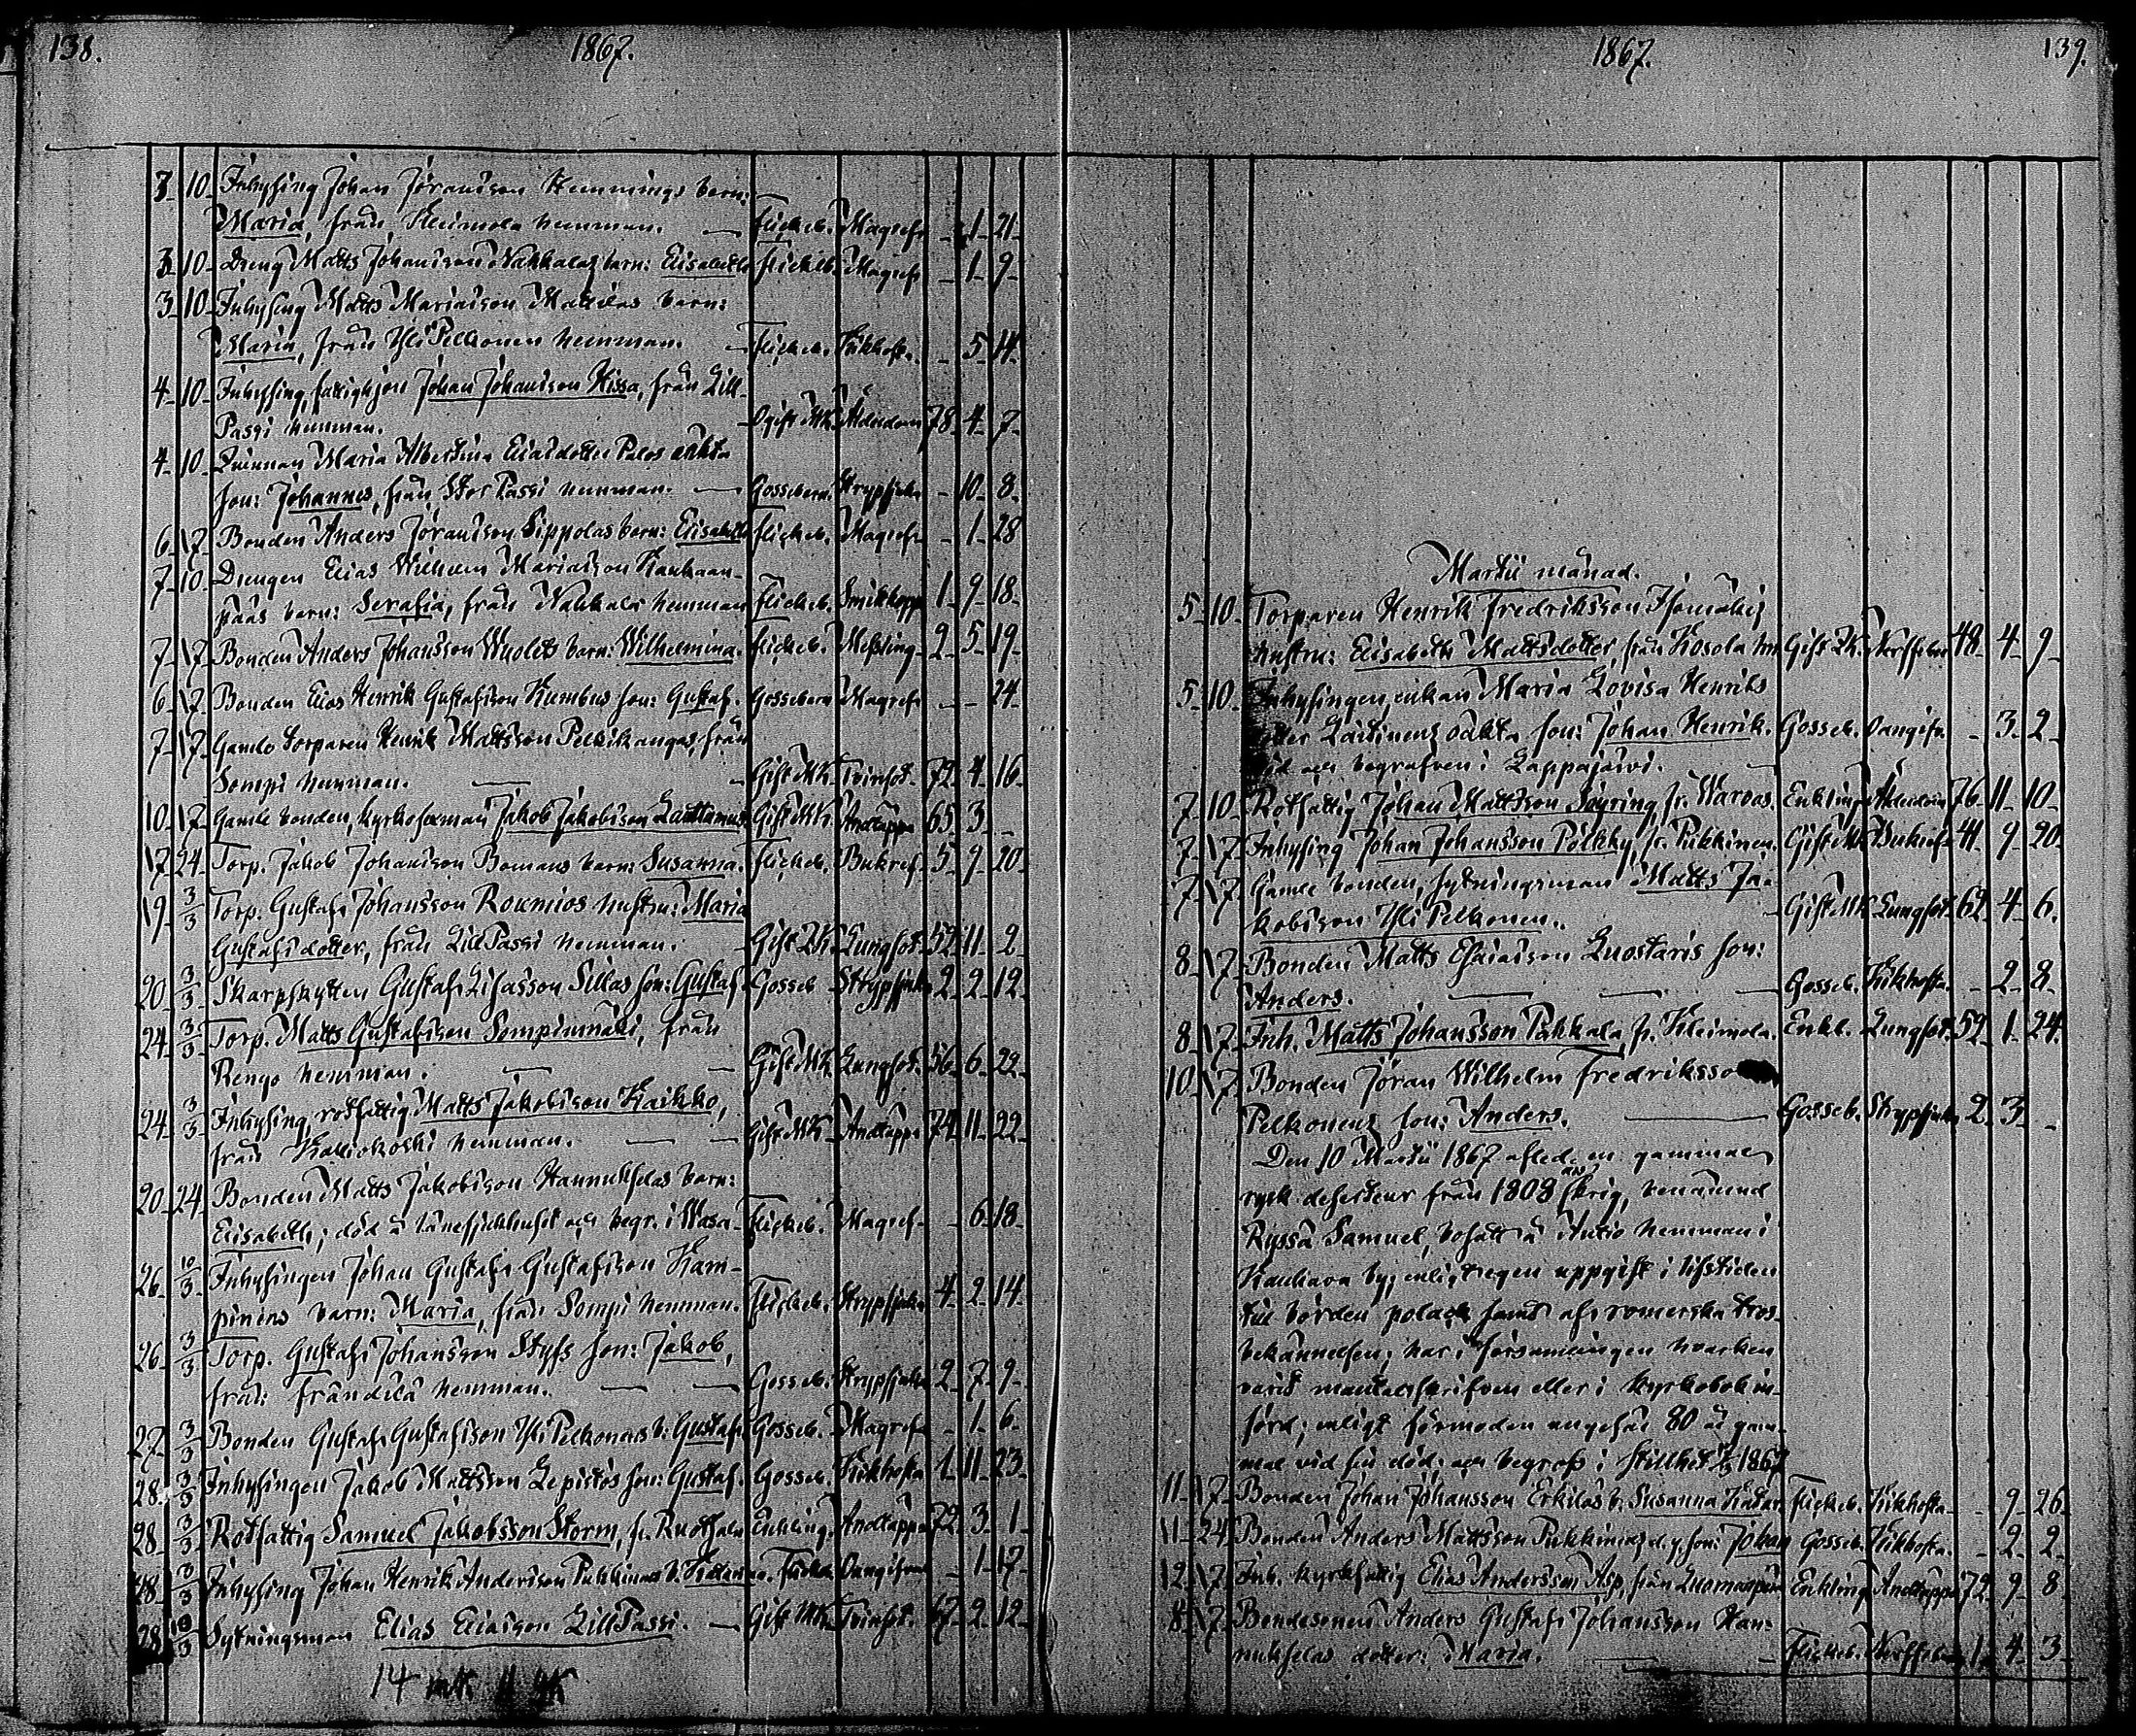 138. 1867.
3 10 Inhysing Johan Jöransson Hemmings barn:
Maria, från Kleimola hemman. Flickeb. Magref. - 1 21
3 10 Dreng Matts Johansson Nahkalas barn: Elisabeth Flickeb. Magref. - 1 9
3 10 Inhysing Matts Mariasson Mattilas barn:
Maria, från Yli Pelkonen hemman. Flickeb. Kikhosta - 5 14
4 10 Inhysing, fattighjon Johan Johansson Kissa, från Lill
Passi hemman. Ogift MK. Ålderdom 78 4 7
4 10 Qvinnan Maria Albertina Eliasdotter Palos oäkta
son: Johannes, från Stor Passi hemman. Gossebarn Strypsjuka - 10 8
6 17 Bonden Anders Jöransson Sippolas barn: Elisabeth Flickeb. Magref. - 1 28
7 10 Drengen Elias Wilhelm Mariasson Kauhaan-
pääs barn: Serafia, från Nahkala hemman Flickeb. Smittkopp. 1 9 18
7 17 Bonden Anders Johansson Wuolets barn: Wilhelmina. Flickeb. Messling 2 5 19
6 17 Bonden Elias Henrik Gustafsson Kumbus son: Gustaf. Gossebarn Magref. - - 24
7 17 Gamle torparen Henrik Mattsson Pelkikangas, från
Sompi hemman. Gift MK. Tvinsot. 72 4 16
10 17 Gamle bonden, kyrkosexman Jakob Jakobsson Lauttamus. Gift MK. Andtäppa 65 3 -
17 24 Torp. Jakob Johansson Bomans barn: Susanna. Flickeb. Bukref. 5 9 20
19 3/3 Torp. Gustaf Johansson Roumios hustru: Maria
Gustafsdotter, från Lill Passi hemman. Gift QK. Lungsot. 52 11 2
20 3/3 Skarpskytten Gustaf Lisasson Sillas son: Gustaf. Gosseb. Strypsjuka 2 2 12
24 3/3 Torp. Matts Gustafsson Sompinmäki, från
Rengo hemman. Gift MK. Lungsot. 56 6 22
24 3/3 Inhysing, rotfattig Matts Jakobsson Kaikko,
från Kalliokoski hemman. Gift MK. Andtäppa 74 11 22
20 24 Bonden Matts Jakobsson Hannukselas barn:
Elisabeth; död å länesjukhuset och begr. i Wasa. Flickeb. Magref. - 6 18
26 10/3 Inhysingen Johan Gustaf Gustafsson Kam-
pinens barn: Maria, från Sompi hemman. Flickeb. Strypsjuka 4 2 14
26 3/3 Torp. Gustaf Johansson Styfs son: Jakob,
från Frändilä hemman. Gosseb. Strypsjuka 2 7 9
27 3/3 Bonden Gustaf Gustafsson Yli Pelkonens b: Gustaf. Gosseb. Magref. - 1 6
28 3/3 Inhysingen Jakob Mattsson Lepistös son: Gustaf. Gosseb. Kikhosta 1 11 23
28 3/3 Rotfattig Samuel Jakobsson Storm, fr. Ruotsala Enkling. Andtäppa 72 3 1
28 3/3 Inhysing Johan Henrik Andersson Pukkinens b. Flickeb. Oangifven - 1 17
28 10/3 Sytningsman Elias Eliasson Lill Passi. Gift MK. Tvinsot. 67 2 12
14 mk
1867. 139.
Martii månad.
5 10 Torparen Henrik Fredriksson Isomäkis
hustru: Elisabeth Mattsdotter, från Kosola hn Gift QK. Nerffeber 48 4 9
5 10 Inhysingen, enkan Maria Lovisa Henriks
dotter Laitinens oäkta son: Johan Henrik. Gosseb. Oangifv. - 3 2
död och begrafven i Lappajärvi.
7 10 Rotfattig Johan Mattsson Söyring, fr. Waroas. Enkling Ålderdom 76 11 10
7 17 Inhysing Johan Johansson Pölkky, fr. Pukkinen. Gift MK Bukref. 41 9 20
7 17 Gamle bonden, sytningsman Matts Ja-
kobsson Yli Pelkonen. Gift MK Lungsot. 62 4 6
8 17 Bonden Matts Esaiasson Luostaris son:
Anders. Gosseb. Kikhosta. - 2 8
8 17 Inh. Matts Johansson Pahkala, fr. Kleimola. Enkl. Lungsot. 52 1 24
10 17 Bonden Jöran Wilhelm Fredriksso
Pelkonens son: Anders. Gosseb. Strypsjuka 2 3 -
Den 10 Martii 1867 afled en gammal
rysk deserteur från 1808 års krig, benämnd
Ryssä Samuel, bosatt å Antio hemman i
Kauhava by; enligt egen uppgift i lifstiden
till börden polack samt af romerska tros-
bekännelsen; har i församlingen hvarken
varit mantalskrifven eller i kyrkobok in-
förd; enligt förmodan angefär 80 år gam-
mal vid sin död och begrofs i stillhet 1867
11 17 Bonden Johan Johansson Erkilas b. Susanna Flickeb. Kikhosta - 9 26
11 24 Bonden Anders Mattsson Pukkinens d.y. son: Johan Gosseb. Kikhosta. - 2 2
12 17 Inh. kyrkfattig Elias Andersson Asp, från Luomanpää Enkling Andtäppa 72 9 8
8 17 Bondesonen Anders Gustaf Johansson Han-
nukselas dotter: Maria. Flickeb. Nerffeber 1 4 3